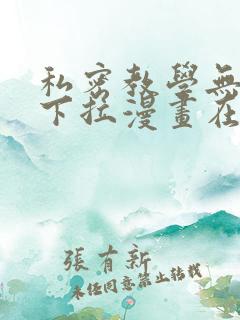 私密教學無
下拉漫畫在
張有新
未經同意禁止轉載